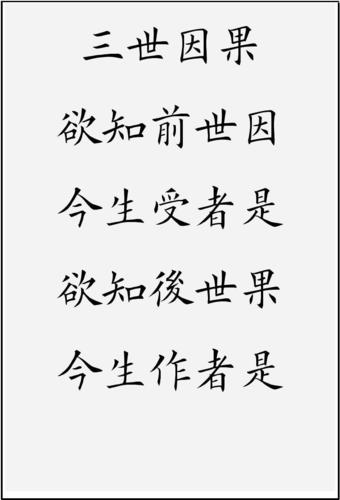 三世因果
欲知前世因
今生受者是
欲知後世果
今生作者是